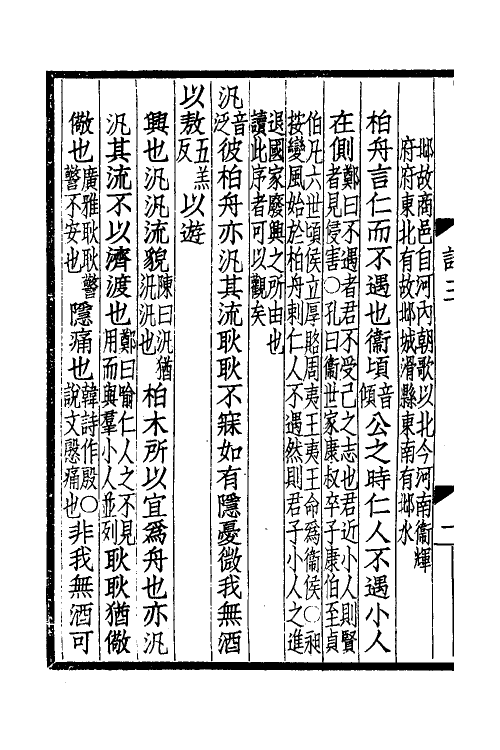 詩三
一
邶故商邑自河內朝歌以北今河南衞輝
府府東北有故邶城滑縣東南有邶水
柏舟言仁而不遇也衞頃音傾公之時仁人不遇小人
在側鄭曰不遇者君不受己之志也君近小人則賢
者見侵害○孔曰衞世家康叔卒子康伯至貞
伯凡六世頃侯立厚賂周夷王夷王命爲衞侯○昶
按變風始於柏舟刺仁人不遇然則君子小人之進
退國家廢興之所由也
讀此序者可以觀矣
汎音泛彼柏舟亦汎其流耿耿不寐如有隱憂微我無酒
以敖五羔反以遊
興也汎汎流貌陳曰汎猶汎汎也柏木所以宜爲舟也亦汎
汎其流不以濟渡也鄭曰喻仁人之不見用而與羣小人並列耿耿猶儆
儆也廣雅耿耿警警不安也隱痛也韓詩作殷○說文慇痛也非我無酒可